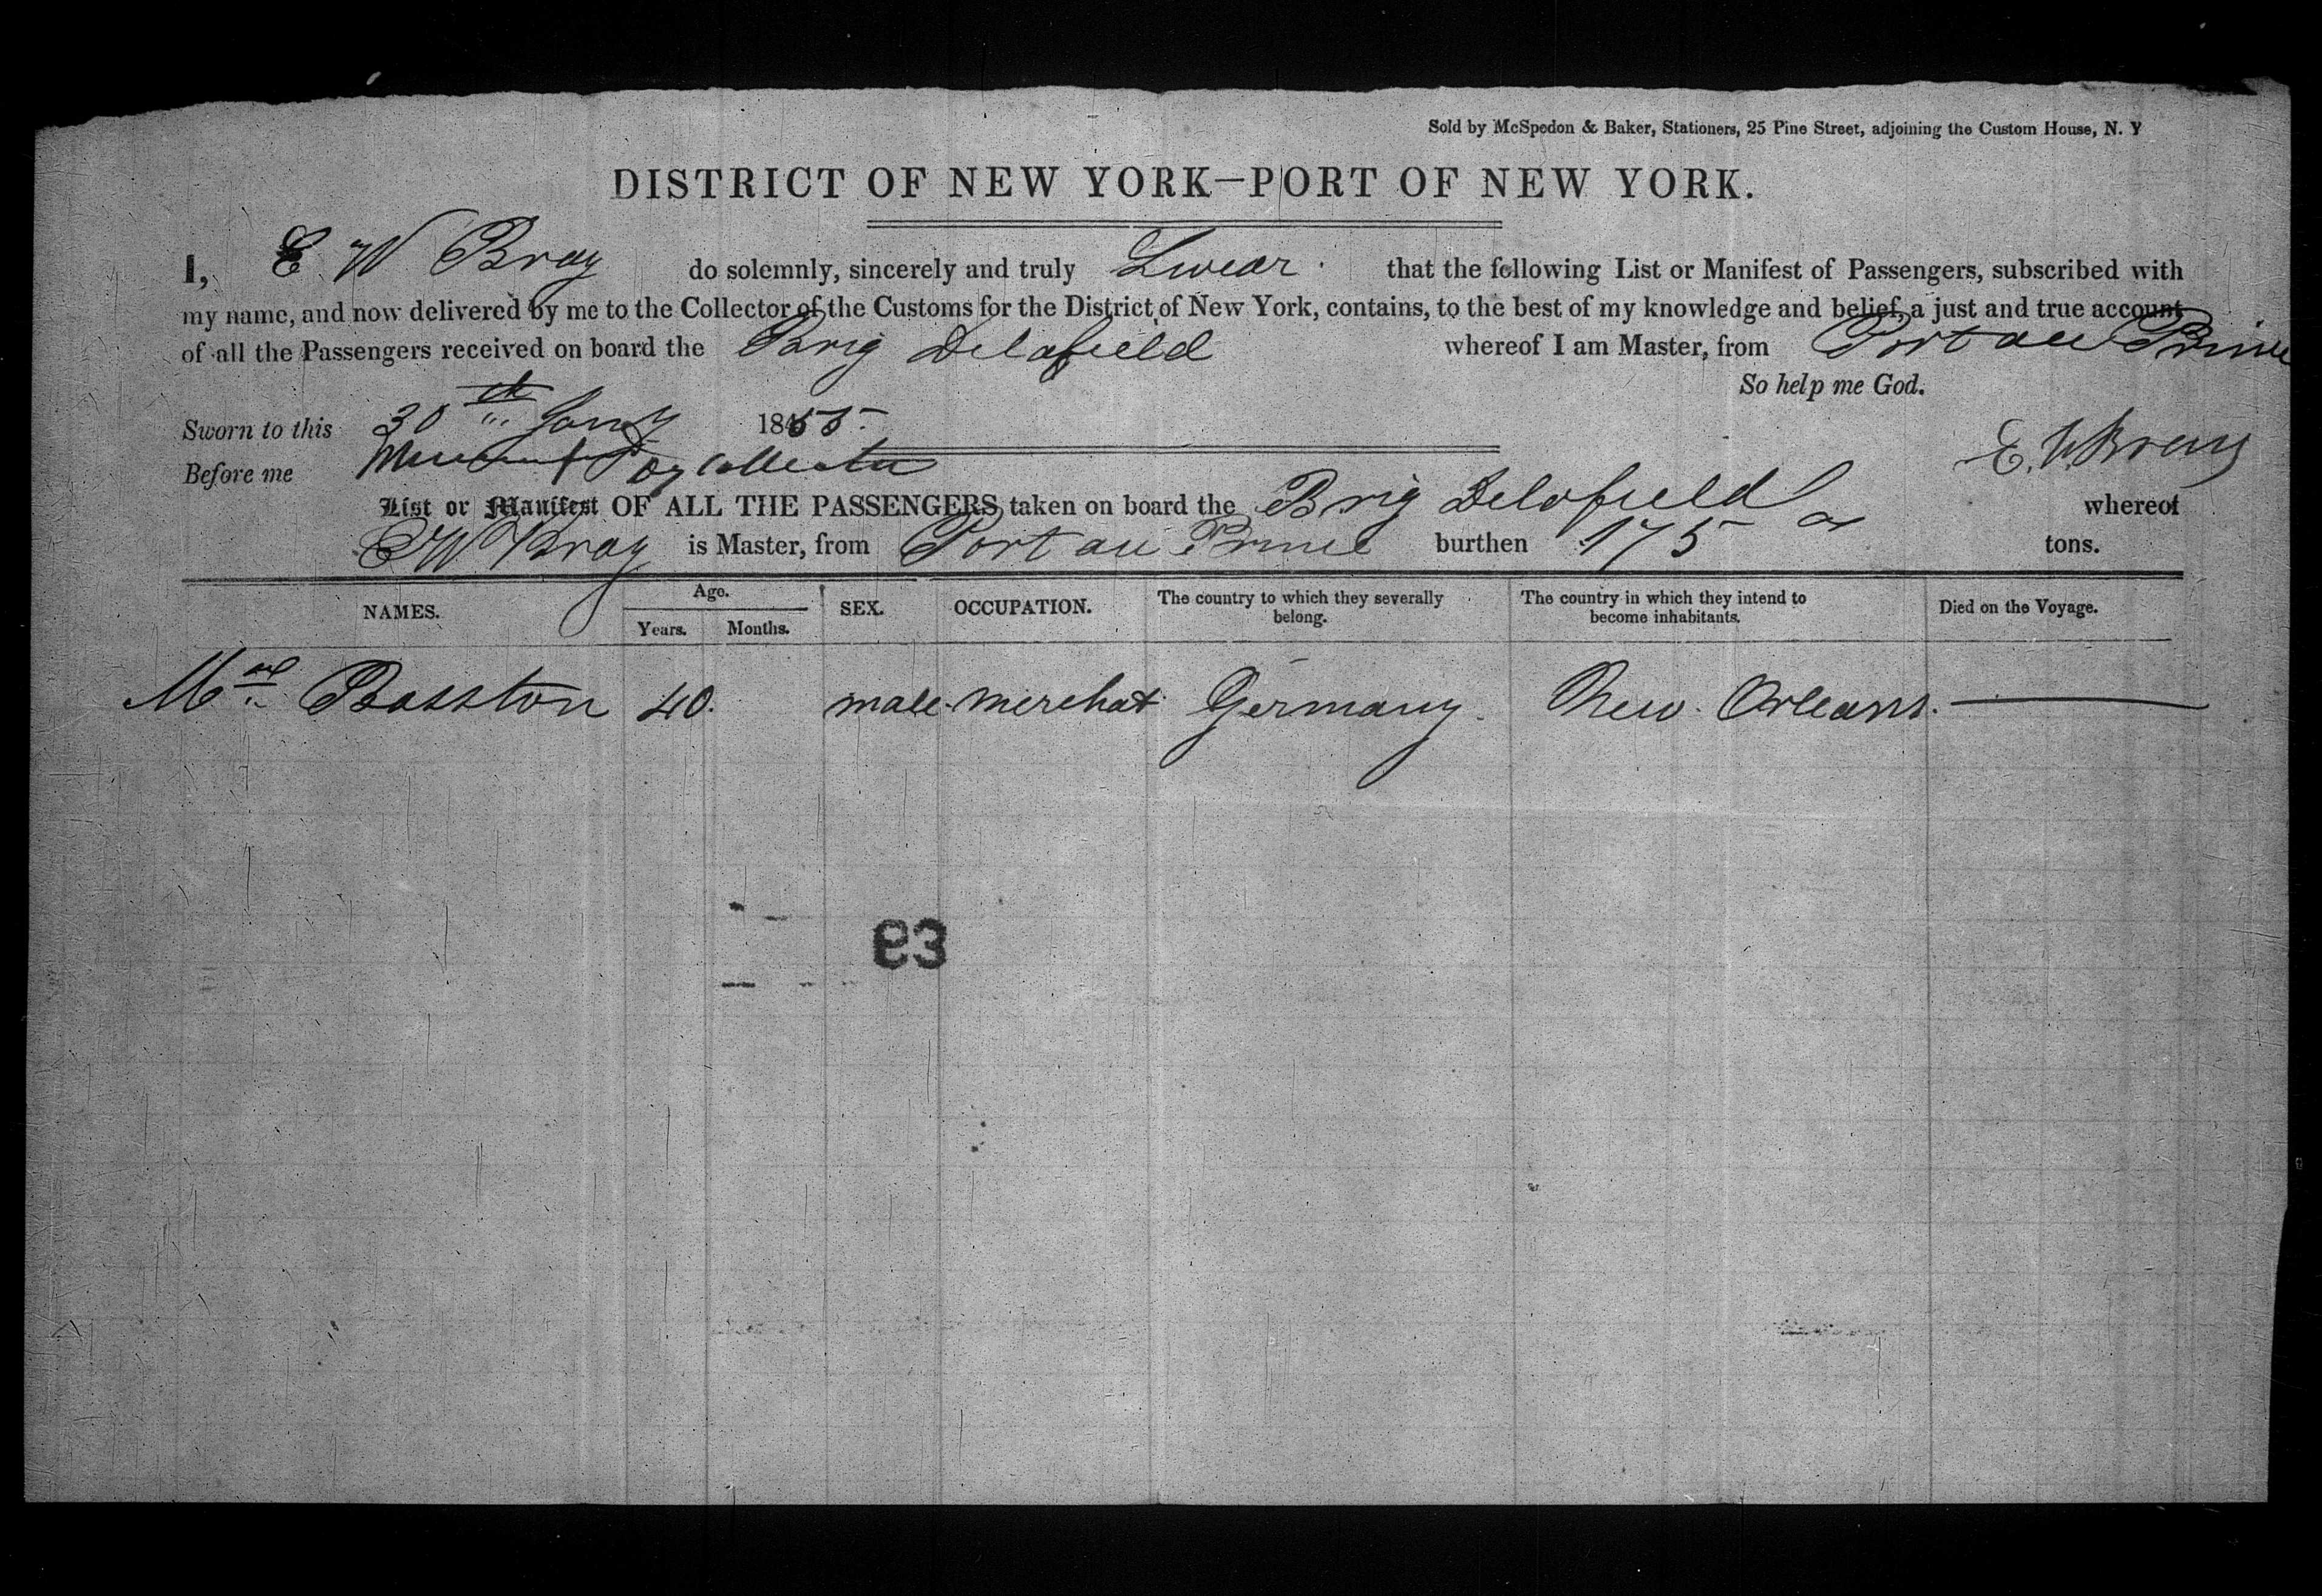 Sold by McSpedon & Baker, Stationers, 25 Pine Street, adjoining the Custom House, N. Y
DISTRICT OF NEW YORK—PORT OF NEW YORK.
I, E W Bray do solemnly, sincerely and truly Swear. that the following List or Manifest of Passengers, subscribed with
my name, and now delivered by me to the Collector of the Customs for the District of New York, contains, to the best of my knowledge and belief, a just and true account
of all the Passengers received on board the Brig Delafield whereof I am Master, from Port au Prince
So help me God.
Sworn to this 30th Jany 1855.
Before me Dy Collector
E. W. Bray
List or Manifest OF ALL THE PASSENGERS taken on board the Brig Delafield whereof
E W Bray is Master, from Port au Prince burthen 175 tons.
NAMES. Age. Years. Months. SEX. OCCUPATION. The country to which they severally belong. The country in which they intend to become inhabitants. Died on the Voyage.
Basston 40. male. merchat Germany. New Orleans.